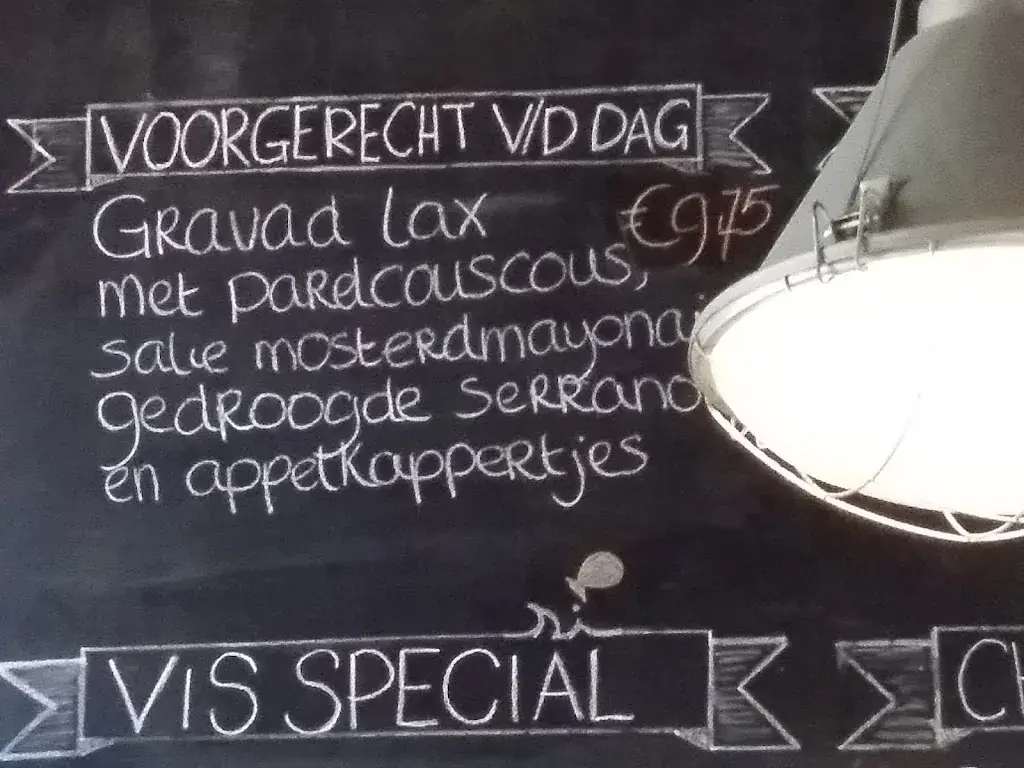 VOORGERECHT V/D DAG
Gravad lax €9,75
met parelcouscous,
salie mosterdmayonai
gedroogde serrano
en appelkappertjes
VIS SPECIAL